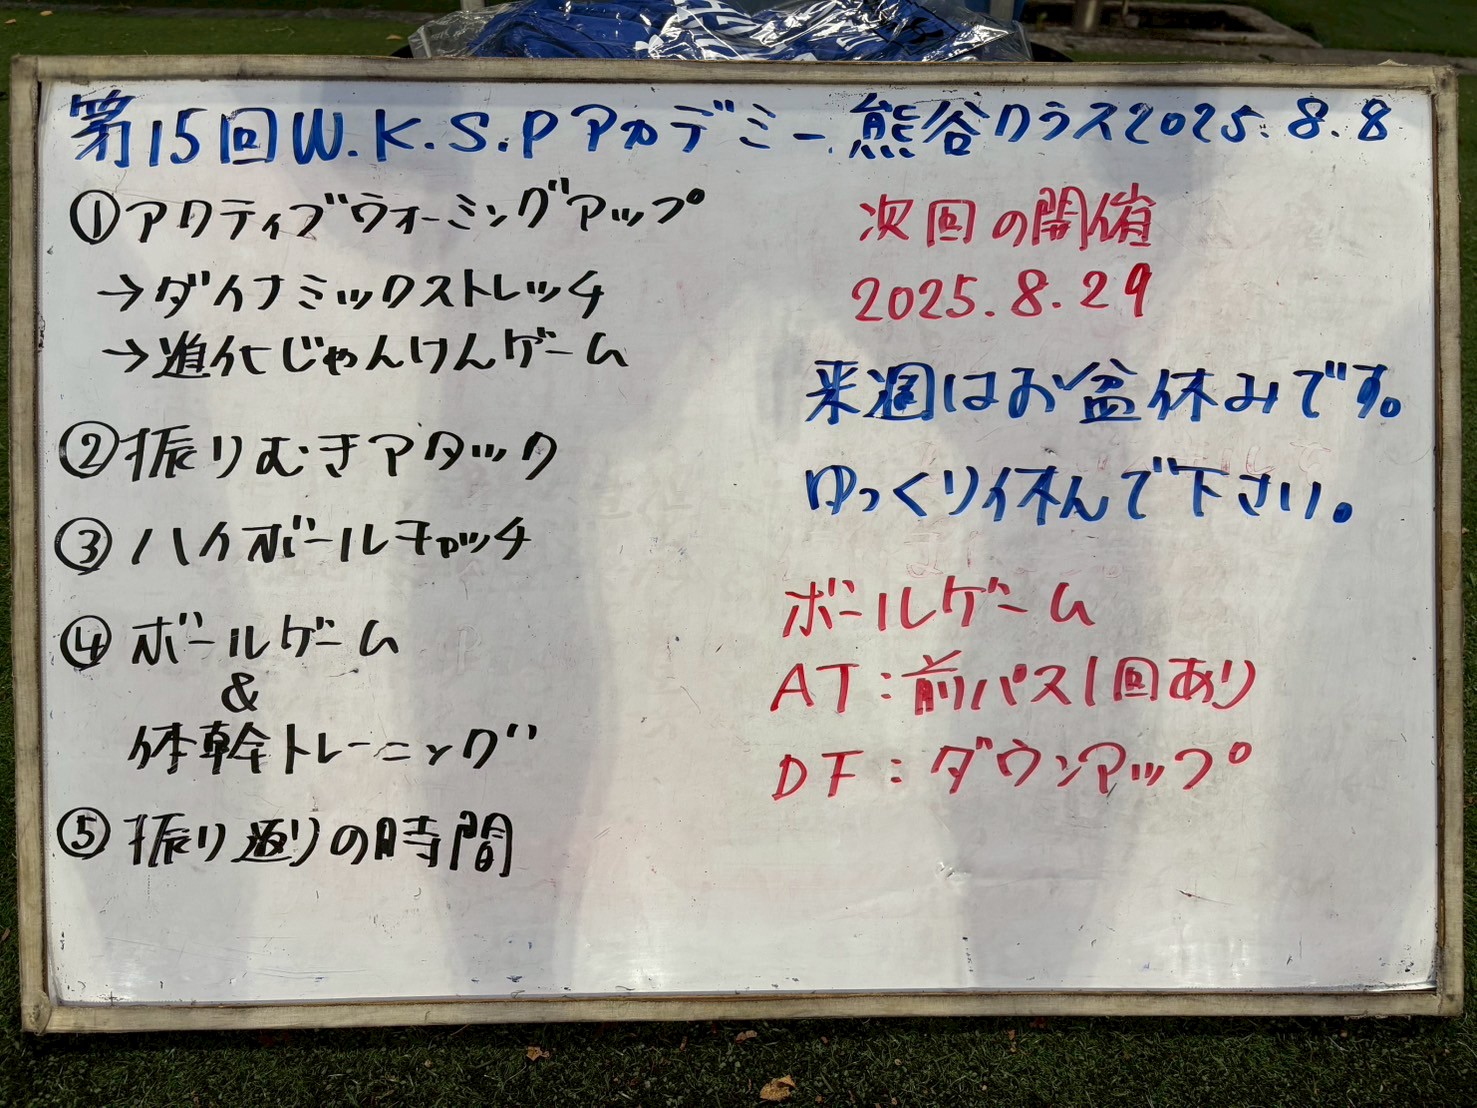 第15回W.K.S.Pアカデミー熊谷クラス2025.8.8
①アクティブウォーミングアップ
→ダイナミックストレッチ
→進化じゃんけんゲーム
②振りむきアタック
③ハイボールキャッチ
④ボールゲーム
&
体幹トレーニング
⑤振り返りの時間
次回の開催
2025.8.29
来週はお盆休みです。
ゆっくり休んで下さい。
ボールゲーム
AT:前パス1回あり
DF:ダウンアップ